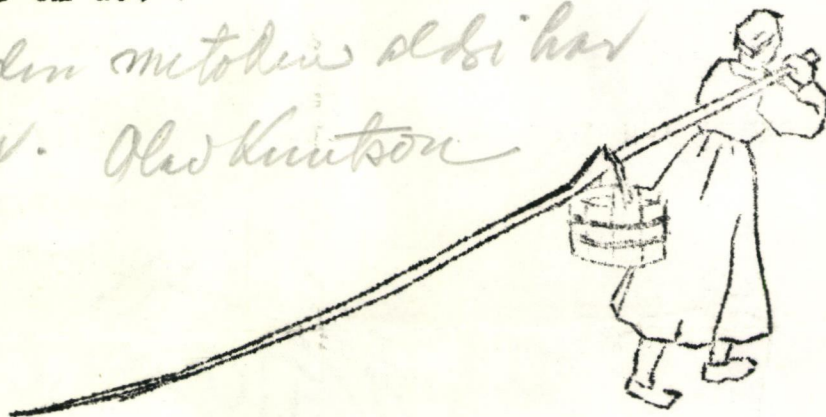 den metoden aldri har
Olav Knutson